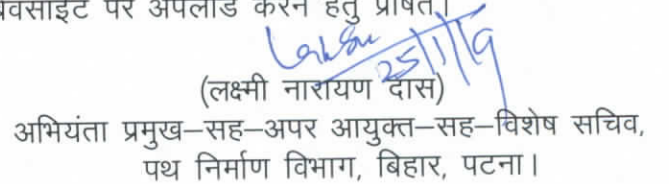 वेबसाइट पर अपलोड करने हेतु प्रेषित।
25/1/19
(लक्ष्मी नारायण दास)
अभियंता प्रमुख–सह–अपर आयुक्त–सह–विशेष सचिव,
पथ निर्माण विभाग, बिहार, पटना।